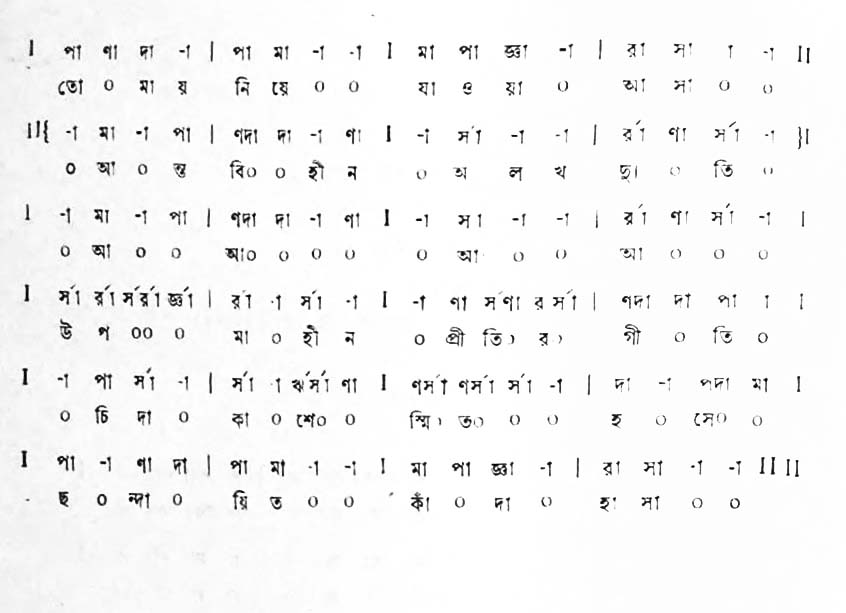 I পা ণা দা -া | পা মা -া -া I মা পা জ্ঞা -া | রা সা া -া II
তো ০ মা য় নি য়ে ০ ০ যা ও য়া ০ আ সা ০ ০
II{ -া মা -া পা | ণদা দা -া ণা I -া র্সা -া -া | র্রা ণা র্সা -া }I
০ আ ০ ন্ত বি০ ০ হী ন ০ অ ল খ দ্যু ০ তি ০
I -া মা -া পা | ণদা দা -া ণা I -া সা -া -া | র্রা ণা র্সা -া I
০ আ ০ ০ আ০ ০ ০ ০ ০ আ ০ ০ আ ০ ০ ০
I র্সা র্রা র্সর্রা র্জ্ঞা | র্রা -া র্সা -া I -া ণা র্সণা র র্সা | ণদা দা পা া I
উ প ০০ ০ মা ০ হী ন ০ প্রী তি০ র০ গী ০ তি ০
I -া পা র্সা -া | র্সা -া ঋর্সর্সা ণা I ণর্সা ণর্সা র্সা -া | দা -া পদা মা I
০ চি দা ০ কা ০ শে০ ০ স্মি০ ত০ ০ ০ হ ০ সে০ ০
I পা -া ণা দা | পা মা -া -া I মা পা জ্ঞা -া | রা সা -া -া II II
ছ ০ ন্দা ০ য়ি ত ০ ০ কাঁ ০ দা ০ হা সা ০ ০